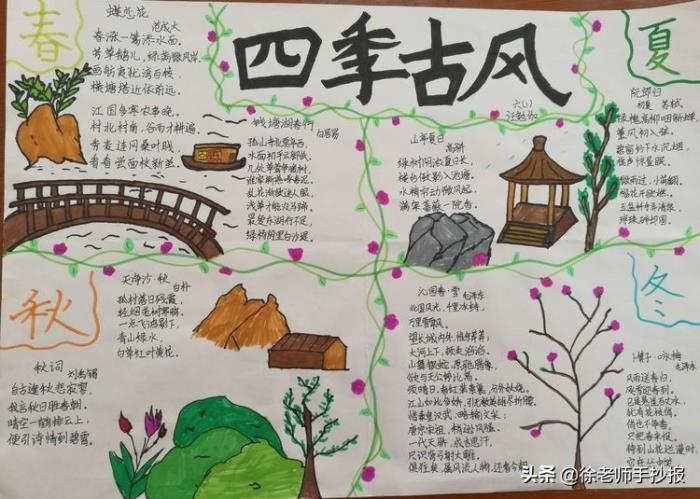 四季古风
六(1)
春
蝶恋花
范成大
春涨一篙添水面。
芳草鹅儿，绿满微风岸。
画舫夷犹湾百转。
横塘塔近依前远。
江国多寒农事晚。
村北村南，谷雨才耕遍。
秀麦连冈桑叶贱。
看看尝面收新茧。
钱塘湖春行
白居易
孤山寺北贾亭西，
水面初平云脚低。
几处早莺争暖树，
谁家新燕啄春泥。
乱花渐欲迷人眼，
浅草才能没马蹄。
最爱湖东行不足，
绿杨阴里白沙堤。
夏
山亭夏日
高骈
绿树阴浓夏日长，
楼台倒影入池塘。
水精帘动微风起，
满架蔷薇一院香。
阮郎归
初夏 苏轼
绿槐高柳咽新蝉。
薰风初入弦。
碧窗纱下水沉烟。
棋声惊昼眠。
微雨过，小荷翻。
榴花开欲燃。
玉盆纤手弄清泉。
琼珠碎却圆。
秋
天净沙·秋
白朴
孤村落日残霞，
轻烟老树寒鸦，
一点飞鸿影下。
青山绿水，
白草红叶黄花。
秋词
刘禹锡
自古逢秋悲寂寥，
我言秋日胜春朝。
晴空一鹤排云上，
便引诗情到碧霄。
冬
沁园春·雪 毛泽东
北国风光，千里冰封，
万里雪飘。
望长城内外，惟余莽莽；
大河上下，顿失滔滔。
山舞银蛇，原驰蜡象，
欲与天公试比高。
须晴日，看红装素裹，分外妖娆。
江山如此多娇，引无数英雄尽折腰。
惜秦皇汉武，略输文采；
唐宗宋祖，稍逊风骚。
一代天骄，成吉思汗，
只识弯弓射大雕。
俱往矣，数风流人物，还看今朝。
卜算子·咏梅
毛泽东
风雨送春归，
飞雪迎春到。
已是悬崖百丈冰，
犹有花枝俏。
俏也不争春，
只把春来报。
待到山花烂漫时，
她在丛中笑
头条 @徐老师手抄报